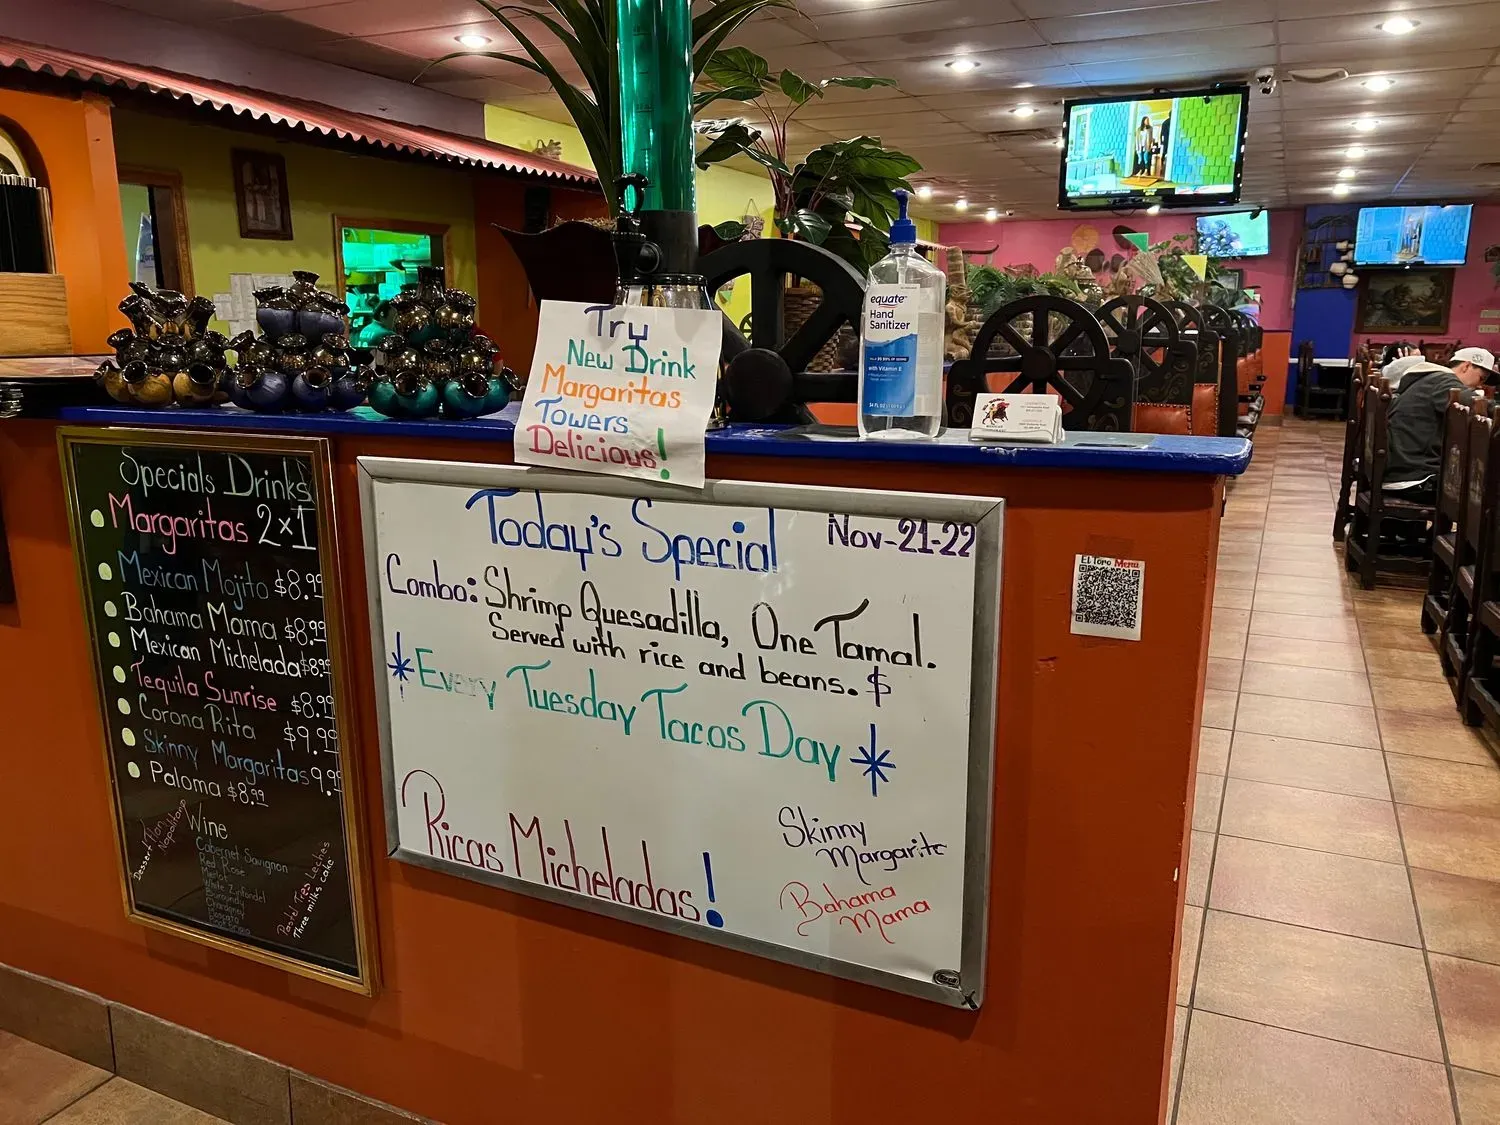 Try
New Drink
Margaritas
Towers
Delicious!
equate
Hand
Sanitizer
with Vitamin E
Specials Drinks
Margaritas 2x1
Mexican Mojito $8.99
Bahama Mama $8.99
Mexican Michelada $8.99
Tequila Sunrise $8.99
Corona Rita $9.99
Skinny Margaritas 9.99
Paloma $8.99
Wine
Cabernet Sauvignon
Red Rose
Merlot
White Zinfandel
Burgundy
Chardonay
Dessert Flan
Napolitano
Pastel Tres Leches
Three milks cake
Today's Special
Nov-21-22
Combo: Shrimp Quesadilla, One Tamal.
Served with rice and beans. $
*Every Tuesday Tacos Day*
Ricas Micheladas!
Skinny
Margarite
Bahama
Mama
El Toro Menu